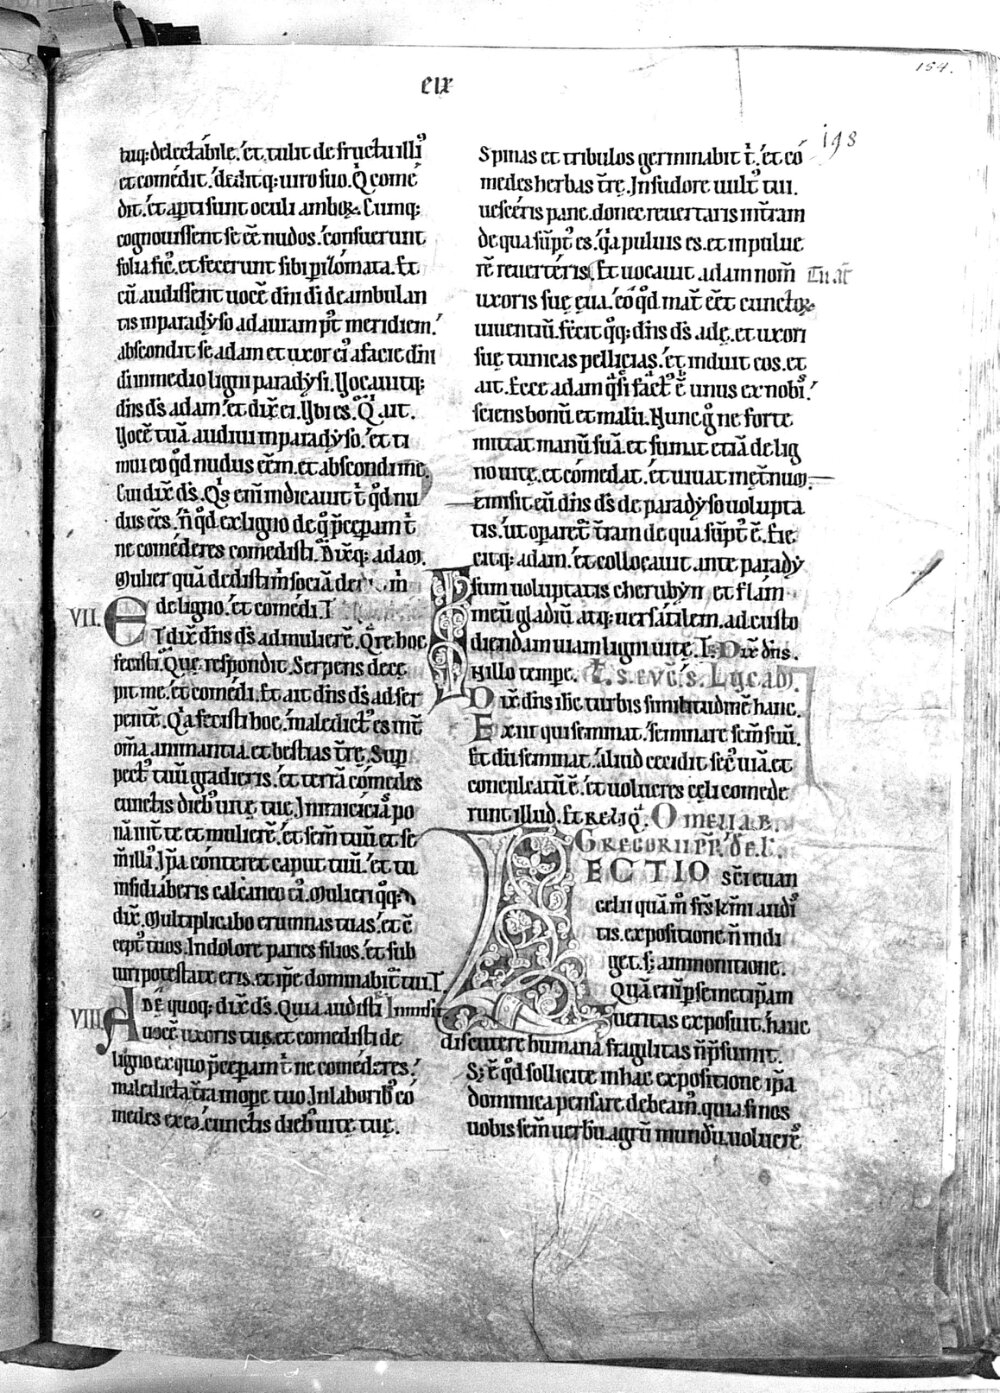 CIX
154.
198
tuq: delectabile. et tulit de fructu illi᾽
et comedit. deditq: uiro suo. Q̇ come
dit. et apti sunt oculi amboꝝ. Cumq:
cognouissent se eē nudos. consuerunt
folia fic᾽. et fecerunt sibi ꝑizomata. Et
cū audissent uocē dn̄i di deambulan
tis in paradyso ad auram p᾽t meridiem.
abscondit se adam et uxor ei᾽ a facie dn̄i
di in medio ligni paradysi. Vocauitq:
dn̄s ds̄ adam. et dix̄ ei. Vbi es. Q᾽ ait.
Vocē tuā audiui in paradyso. et ti
mui eo qd̄ nudus eēm. et abscondi me.
Cui dix̄ ds̄. Q᾽s enī indicauit t᾽ qd̄ nu
dus eēs. n̄ qd̄ ex ligno de q᾽ p̄cepam t᾽
ne comederes comedisti. Dix̄q: adam.
Mulier quā dedisti m᾽ sociā de m᾽
VII. de ligno. et comedi.
Et dix̄ dn̄s ds̄ ad mulierē. Q᾽re hoc
fecisti. Que respondit. Serpens dece
pit me. et comedi. Et ait dn̄s ds̄ ad ser
pentē. Q᾽a fecisti hoc. maledict᾽ es int᾽
om̄a animantia. et bestias tr̄e. Sup
pect᾽ tuū gradieris. et terrā comedes
cunctis dieb᾽ uite tue. Inimicicias po
nā int᾽ te et mulierē. et sem̄ tuū et se
m̄ illi᾽. Ip̄a conteret caput tuū. et tu
insidiaberis calcaneo ei᾽. Mulieri qq:
dix̄. Multiplicabo erumnas tuas. et c̄
cept᾽ tuos. In dolore paries filios. et sub
uiri potestate eris. et ip̄e dominabit᾽ tui.
VIII. Ade quoq: dix̄ ds̄. Quia audisti
uocē uxoris tue. et comedisti de
ligno ex quo p̄cepam t᾽ ne comederes.
maledicta tr̄a in ope tuo. In laborib᾽ co
medes ex ea. cunctis dieb᾽ uite tue.
Spinas et tribulos germinabit t᾽. et co
medes herbas tr̄e. In sudore uult᾽ tui.
uesceris pane. donec reuertaris in tr̄am
de qua sūpt᾽ es. q᾽a puluis es. et in pulue
rē reuerteris. Et uocauit adam nom̄
uxoris sue eua. eo qd̄ mat᾽ eēt cunctoꝝ
uiuentiū. fecit qq: dn̄s ds̄ ade. et uxori
sue tunicas pellicias. et induit eos. et
ait. Ecce adam q᾽si fact᾽ ē unus ex nobi᾽.
sciens bonū et malū. Nunc g᾽ ne forte
mittat manū suā. et sumat etiā de lig
no uite. et comedat. et uiuat in et᾽num.
Emisit eū dn̄s ds̄ de paradyso uolupta
tis. ut opareť tr̄am de qua sūpt᾽ ē. Eie
citq: adam. et collocauit ante parady
sum uoluptatis cherubyn. et flam
meū gladiū. atq: uersatilem. ad custo
diendam uiam ligni uite. Dix̄ dn̄s.
In illo tempe. S. EVG. S. LVCAM
Dix̄ dn̄s ih̄c turbis similitudinē hanc.
Exiit qui seminat. seminare sem̄ suū.
Et dū seminat. aliud cecidit sec᾽ uiā. et
conculcatū ē. et uolucres celi comede
runt illud. Et reliq᾽. OMELIA B.
GREGORII PP.
LECTIO sc̄i euan
gelii quā m᾽ frs̄ km̄i audi
tis. expositione n̄ indi
get. s; ammonitione.
Quā enī ꝑ semetip̄am
ueritas exposuit. hanc
discutere humana fragilitas n̄ p̄sumit.
S; ē qd̄ sollicite in hac expositione ip̄a
dominica pensare debeam᾽. quia si nos
uobis sem̄ uerbū. agrū mundū. uolucre᾽